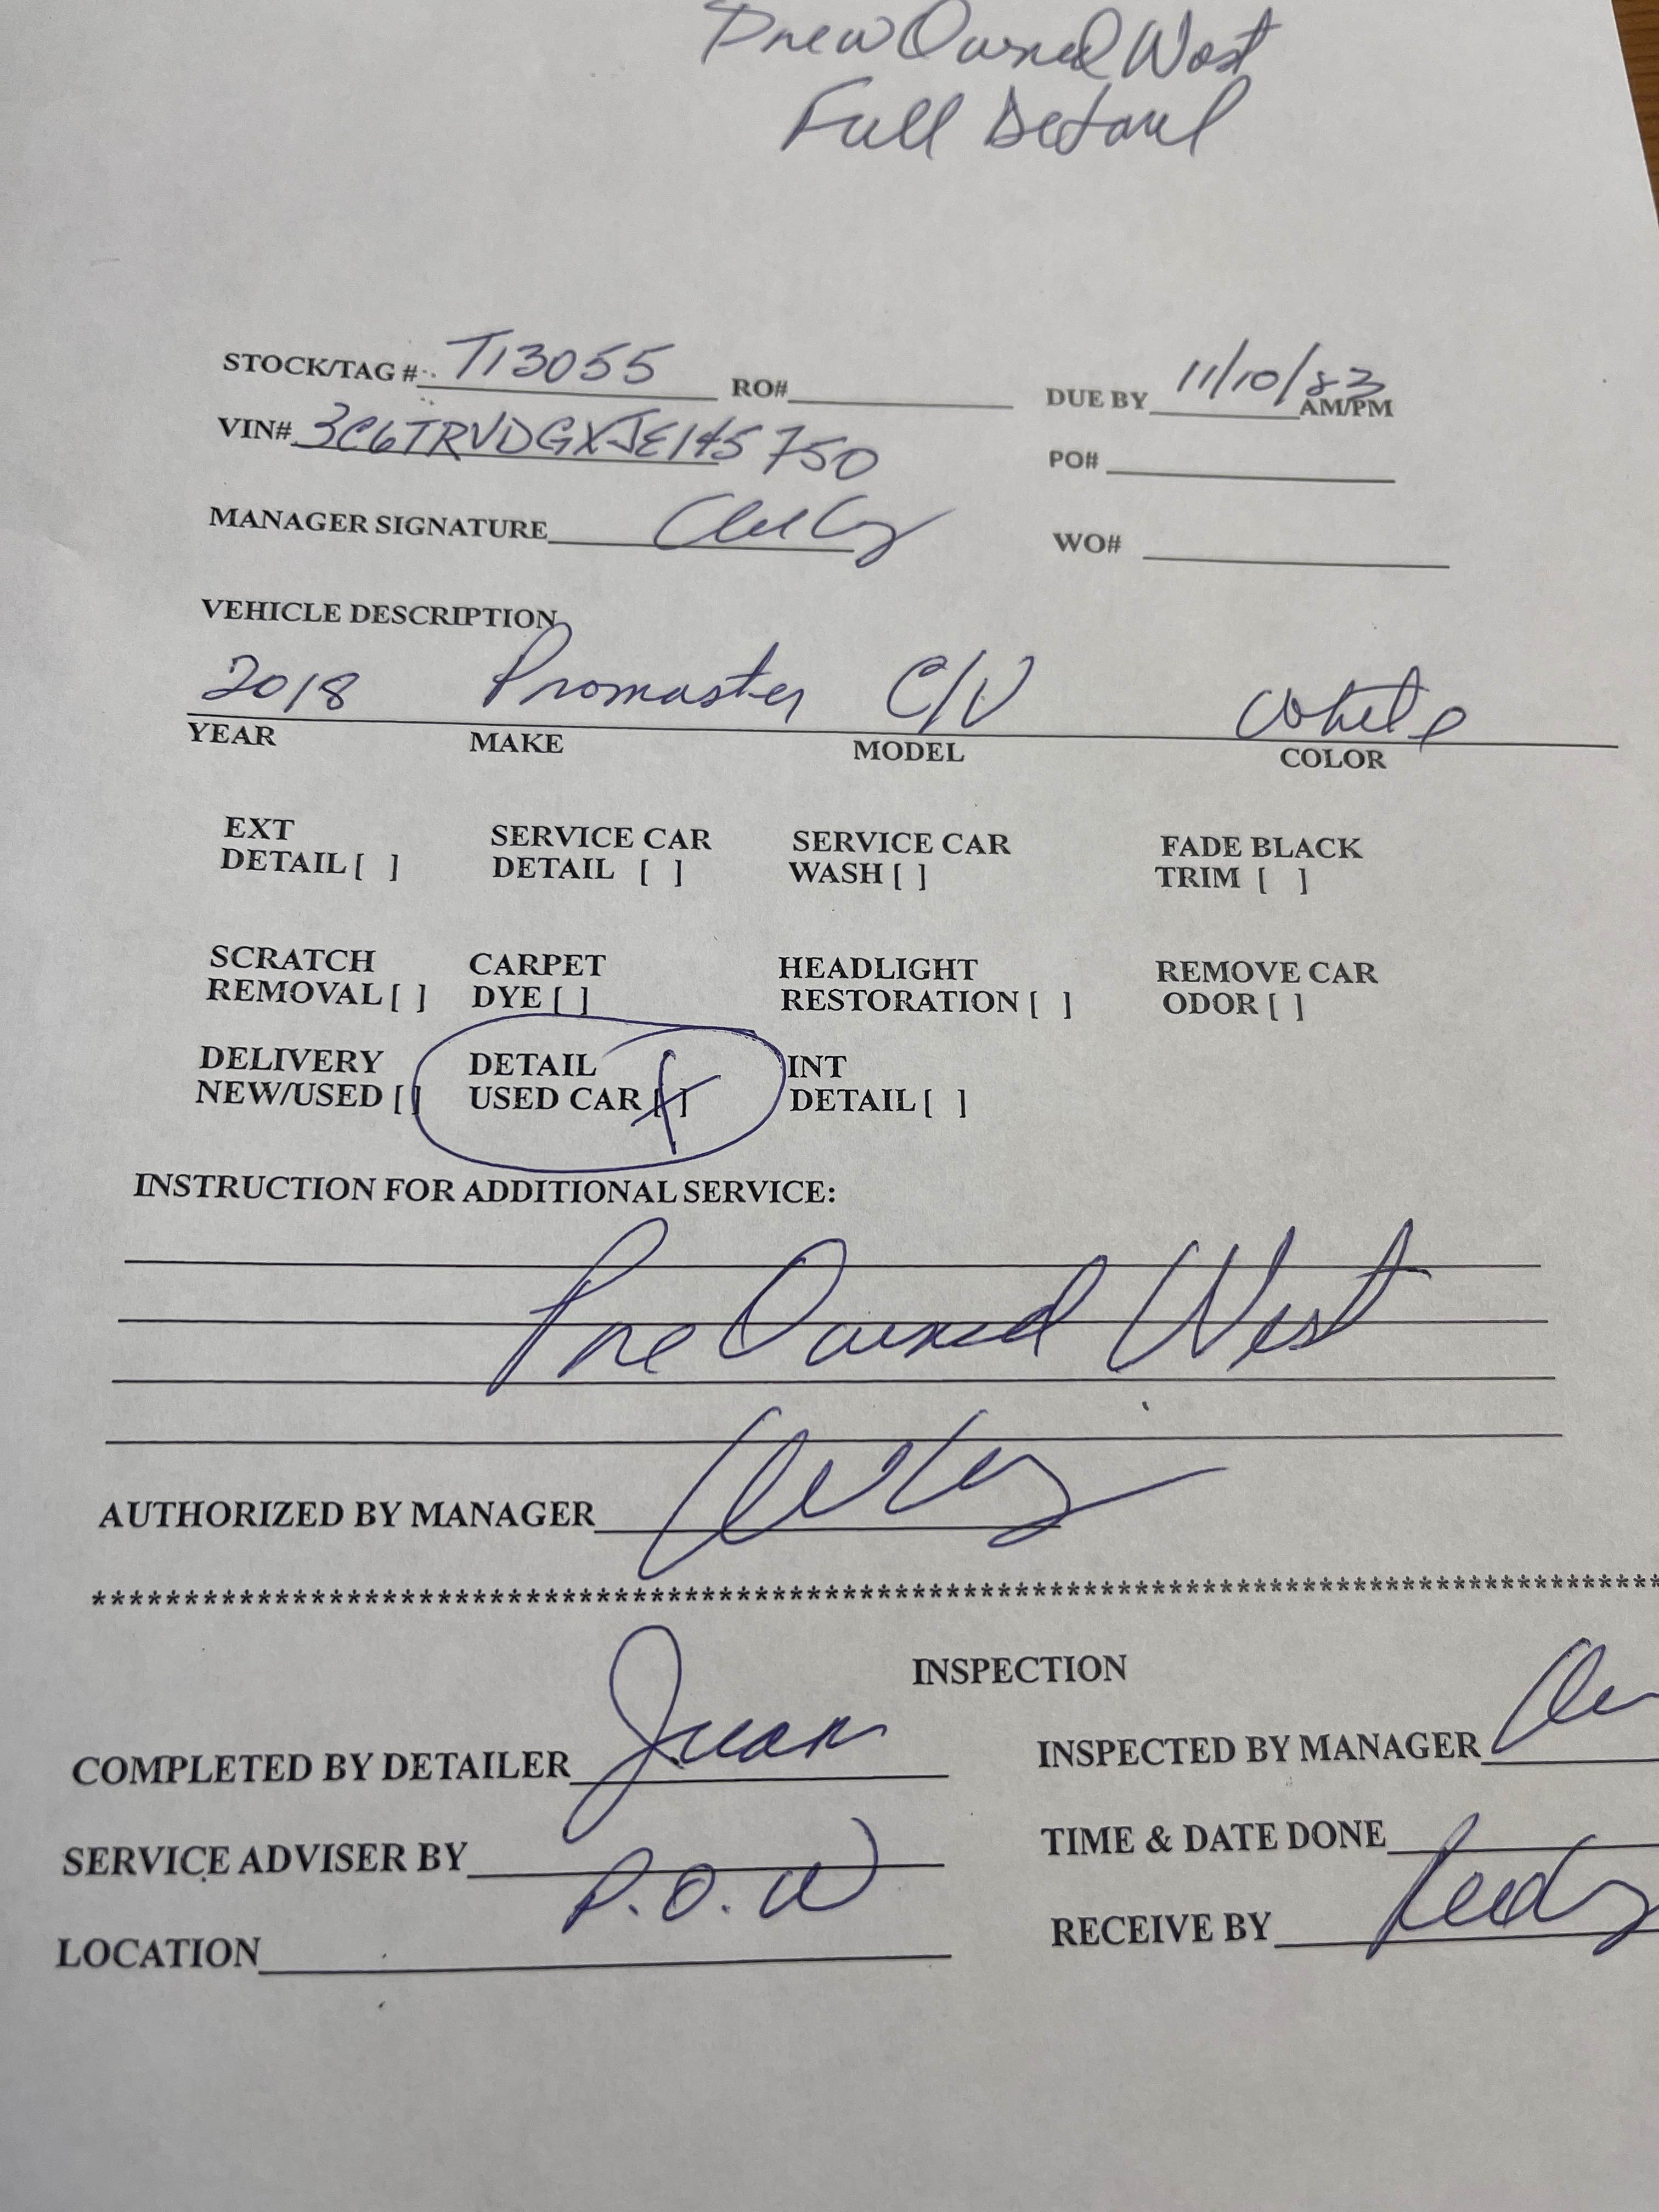 Pre Owned West
Full Detail
STOCK/TAG # T13055 RO# DUE BY 11/10/23 AM/PM
VIN# 3C6TRVDGXJE145750 PO#
MANAGER SIGNATURE WO#
VEHICLE DESCRIPTION
2018 Promaster C/V White
YEAR MAKE MODEL COLOR
EXT SERVICE CAR SERVICE CAR FADE BLACK
DETAIL [ ] DETAIL [ ] WASH [ ] TRIM [ ]
SCRATCH CARPET HEADLIGHT REMOVE CAR
REMOVAL [ ] DYE [ ] RESTORATION [ ] ODOR [ ]
DELIVERY DETAIL INT
NEW/USED [ ] USED CAR [X] DETAIL [ ]
INSTRUCTION FOR ADDITIONAL SERVICE:
Pre Owned West
AUTHORIZED BY MANAGER
INSPECTION
COMPLETED BY DETAILER Juan INSPECTED BY MANAGER
SERVICE ADVISER BY P.O.W TIME & DATE DONE
LOCATION RECEIVE BY